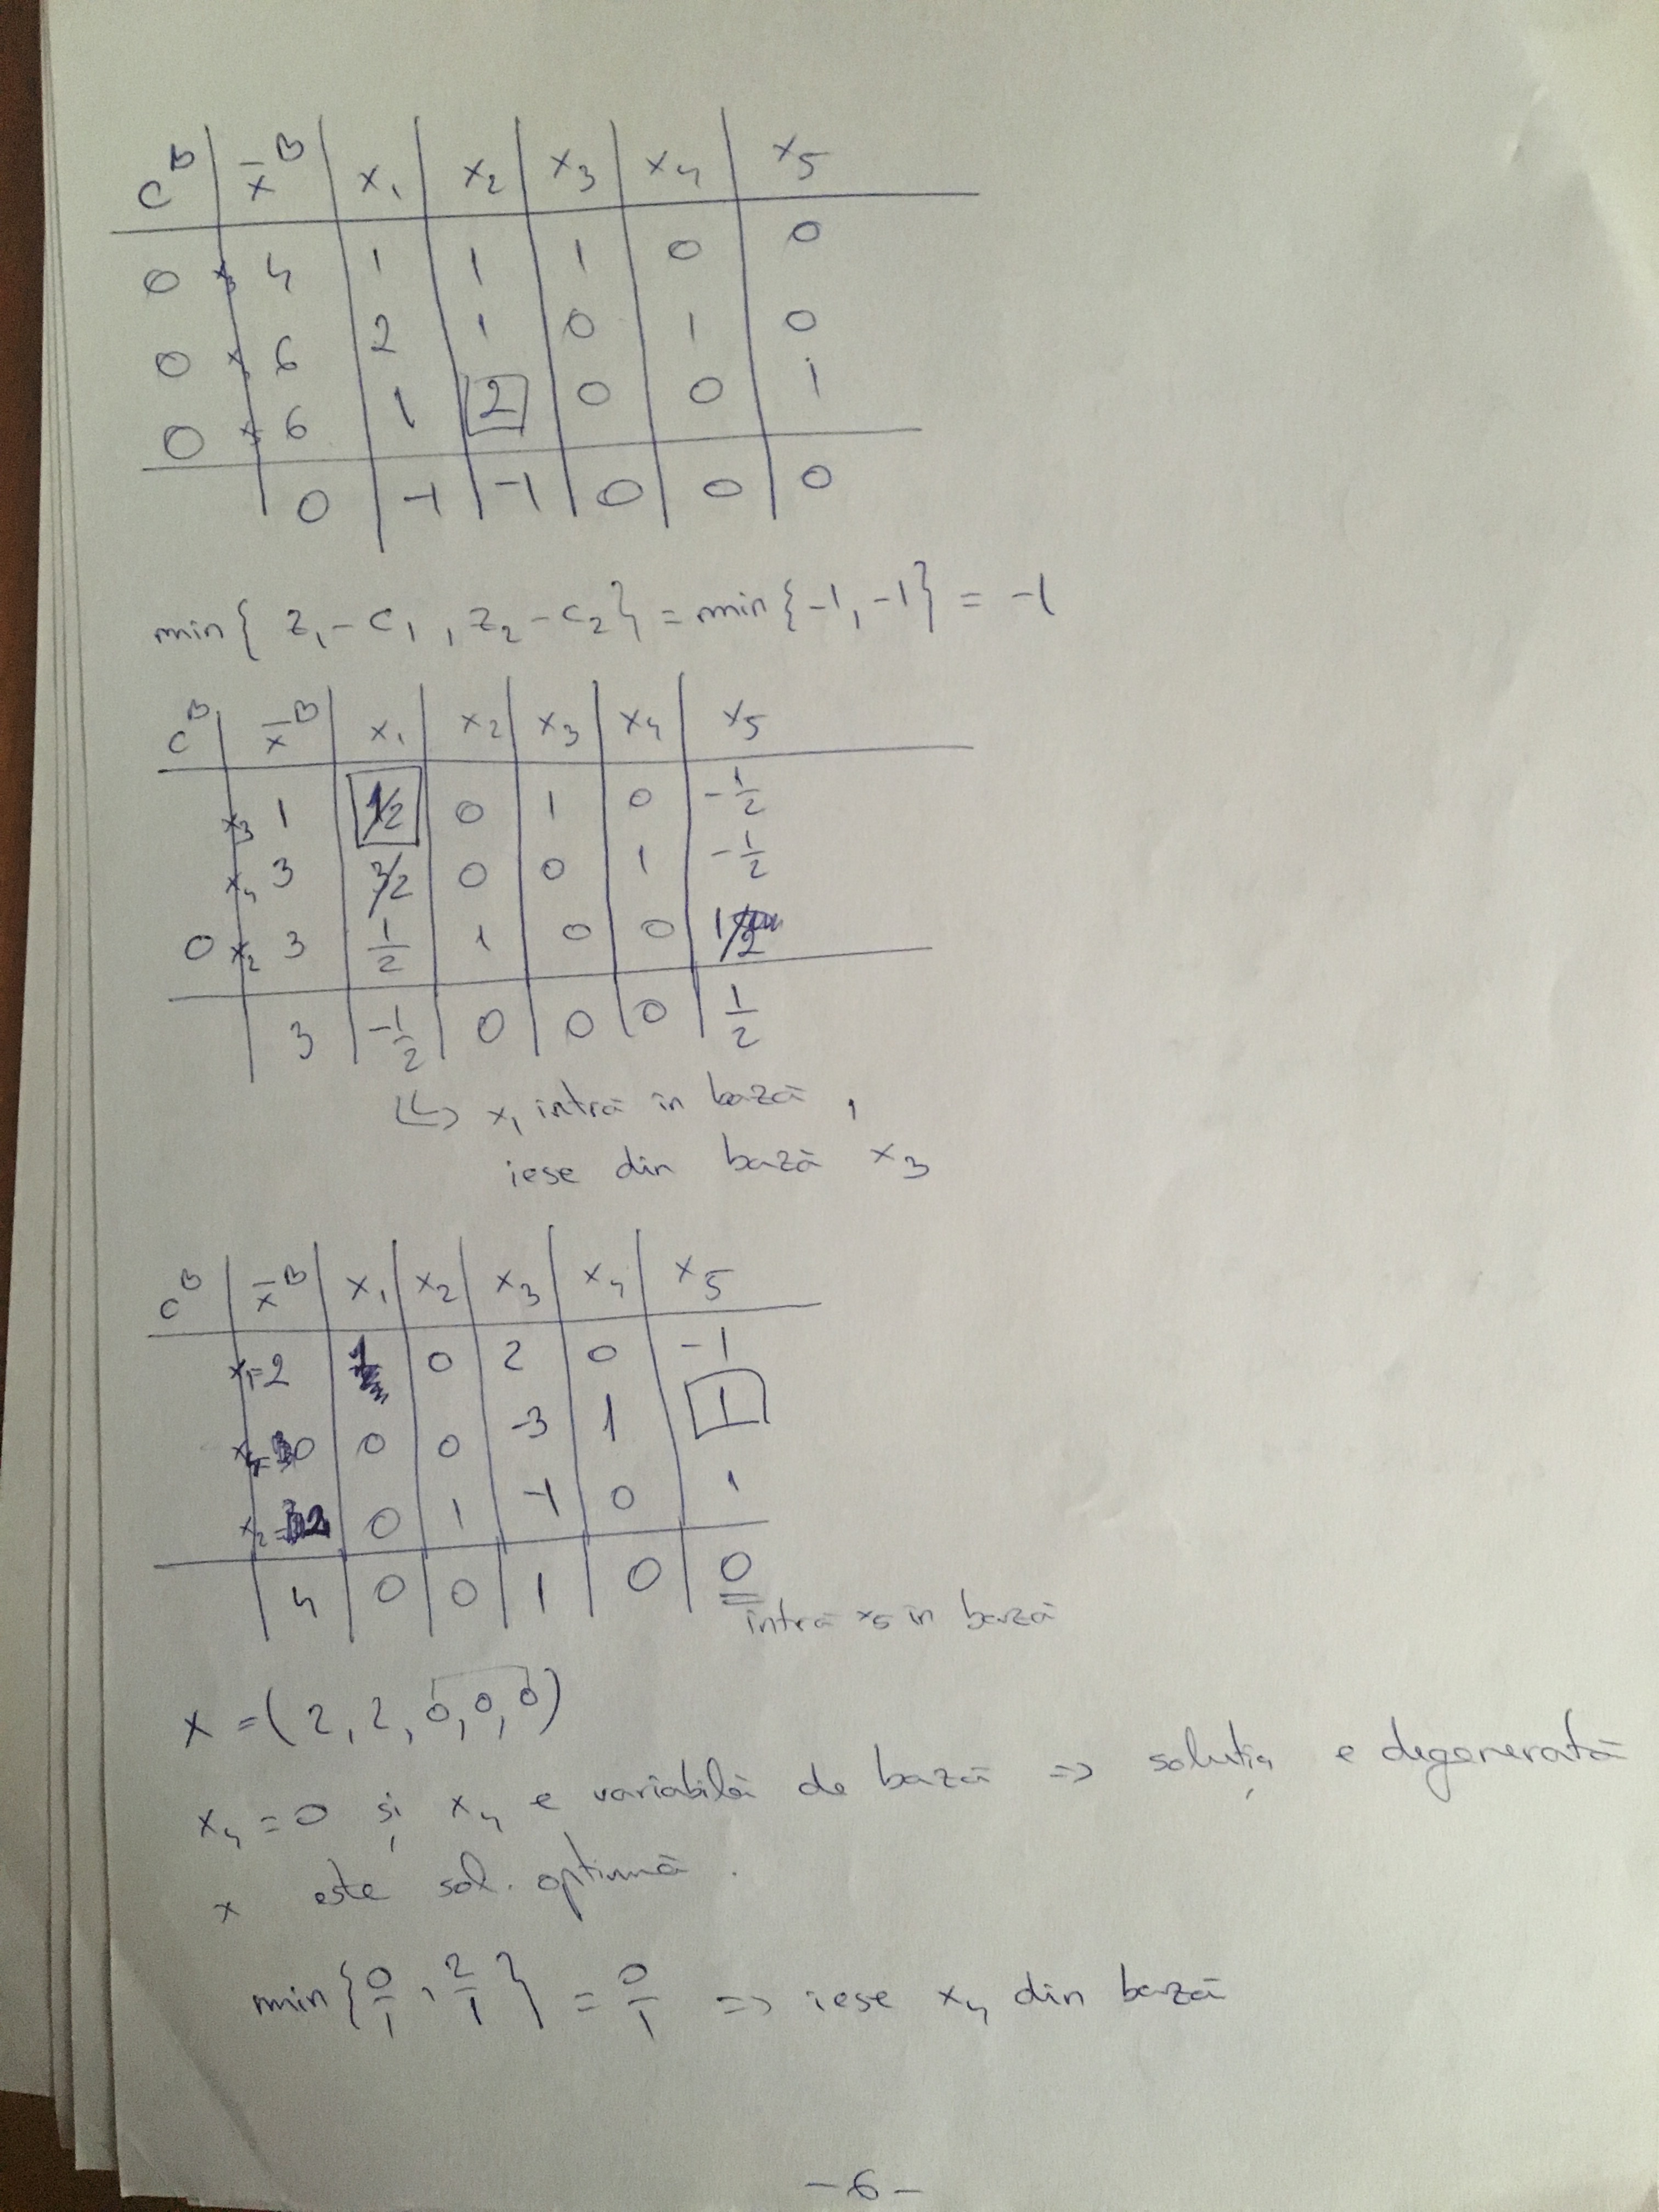 c^B | x̄^B | x₁ | x₂ | x₃ | x₄ | x₅
0 x₃ 4 | 1 | 1 | 1 | 0 | 0
0 6 | 2 | 1 | 0 | 1 | 0
0 6 | 1 | 2 | 0 | 0 | 1
0 | -1 | -1 | 0 | 0 | 0
min{ z₁-c₁, z₂-c₂} = min{-1,-1} = -1
c^B | x̄^B | x₁ | x₂ | x₃ | x₄ | x₅
x₃ 1 | 1/2 | 0 | 1 | 0 | -1/2
x₄ 3 | 3/2 | 0 | 0 | 1 | -1/2
0 x₂ 3 | 1/2 | 1 | 0 | 0 | 1/2
3 | -1/2 | 0 | 0 | 0 | 1/2
↳ x₁ intră în bază ,
iese din bază x₃
c^B | x̄^B | x₁ | x₂ | x₃ | x₄ | x₅
x₁=2 | 1 | 0 | 2 | 0 | -1
x₄=0 | 0 | 0 | -3 | 1 | 1
x₂=2 | 0 | 1 | -1 | 0 | 1
4 | 0 | 0 | 1 | 0 | 0
intră x₅ în bază
x = (2, 2, 0, 0, 0)
x₄ = 0 și x₄ e variabilă de bază => soluția e degenerată
x este sol. optimă.
min{0/1, 2/1} = 0/1 => iese x₄ din bază
-6-